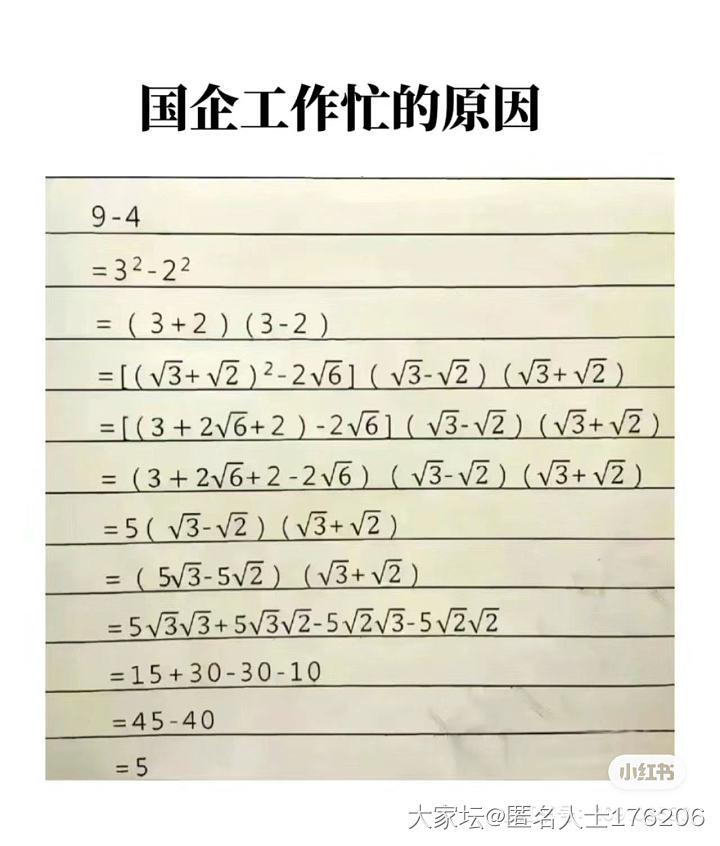 国企工作忙的原因
9-4
=3²-2²
=(3+2)(3-2)
=[(√3+√2)²-2√6](√3-√2)(√3+√2)
=[(3+2√6+2)-2√6](√3-√2)(√3+√2)
=(3+2√6+2-2√6)(√3-√2)(√3+√2)
=5(√3-√2)(√3+√2)
=(5√3-5√2)(√3+√2)
=5√3√3+5√3√2-5√2√3-5√2√2
=15+30-30-10
=45-40
=5
小红书
大家坛@匿名人士176206